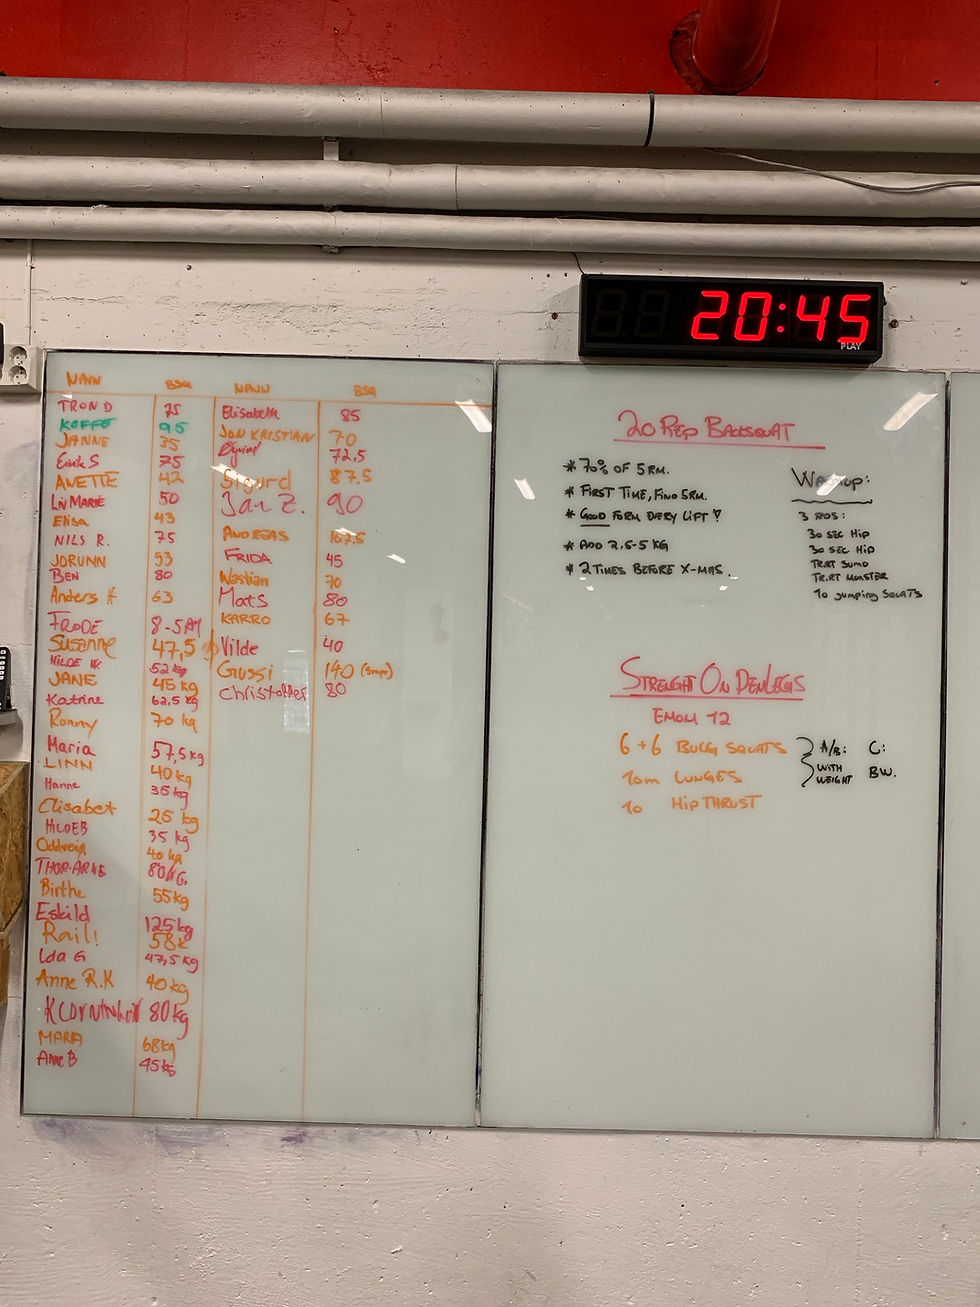 20:45
PLAY
NAVN BSQ
TROND 75
KOFFE 95
JANNE 35
Eirik S 75
ANETTE 42
Liv Marie 50
Elisa 43
NILS R. 75
JORUNN 53
BEN 80
Anders H 63
FRODE 8-5AM
Susanne 47,5
HILDE W. 52kg
JANE 45 kg
Katrine 62,5 kg
Ronny 70 kg
Maria 57,5kg
LINN 40kg
Hanne 35kg
Elisabet 25 kg
HILDEB 35 kg
Oddveig 40 kg
THOR-ARNE 80KG.
Birthe 55kg
Eskild 125kg
58k
Ida G 47,5 kg
Anne R.K 40kg
80kg
MARIA 68kg
Anne B 45kg
NAVN BSQ
Elisabeth 85
JON KRISTIAN 70
Øyvind 72.5
Sigurd 87.5
Jan Z. 90
ANDREAS
FRIDA 45
Nastian 70
Mats 80
KARRO 67
Vilde 40
Gussi 140
Christoffer 80
20 REP BACKSQUAT
* 70% OF 5RM.
* FIRST TIME, FIND 5RM.
* GOOD FORM EVERY LIFT!
* ADD 2.5-5 KG
* 2 TIMES BEFORE X-MAS.
WARMUP:
3 RDS:
30 SEC HIP
30 SEC HIP
TR.RT SUMO
TR.RT MONSTER
10 jumping SQUATS
STRENGHT ON DEMLEGIS
EMOM 12
6+6 BULG SQUATS
10m LUNGES
10 HIP THRUST
A/B:
WITH
WEIGHT
C:
BW.